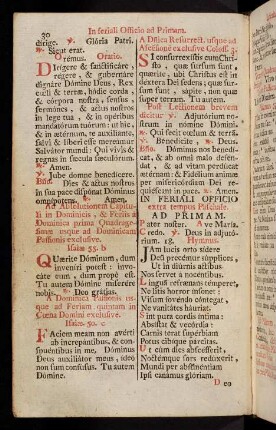 30
In feriali Officio ad Primam.
dirige. ℣. Glória Patri.
℟. Sicut erat.
Orémus. Oratio.
DIrigere & sanctificáre,
régere, & gubernáre
dignáre Dómine Deus, Rex
cæli & terræ, hódie corda
& córpora nostra, sensus,
sermónes, & actus nostros
in lege tua, & in opéribus
mandatórum tuórum: ut hic,
& in ætérnum, te auxiliante,
salvi & líberi esse mereámur
Salvátor mundi: Qui vivis &
regnas in sæcula sæculórum.
℟. Amen.
℣. Jube domne benedícere.
Dies & actus nostros
in sua pace dispónat Dóminus
omnípotens. ℟. Amen.
in Dominicis, & Feriis à
Dominica prima Quadrage-
simæ usque ad Dominicam
Passionis exclusive.
Isaiæ 55. b
QUærite Dóminum, dum
inveníri potest: invo-
cáte eum, dum prope est.
Tu autem Dómine miserére
nobis. ℟. Deo grátias.
A Dominica Passionis us-
que ad Feriam quintam in
Cœna Domini exclusive.
Isaiæ 50. c
FAciem meam non avérti
ab increpántibus, & con-
spuéntibus in me, Dóminus
Deus auxiliátor meus, ideo
non sum confúsus. Tu autem
Dómine.
A Dñica Resurrect. usque ad
Ascensionē exclusive Coloss. 3.
SI consurrexístis cum Chri-
sto, quæ sursum sunt
quærite, ubi Christus est in
déxtera Dei sedens; quæ sur-
sum sunt, sápite, non quæ
super terram. Tu autem.
Post Lectionem brevem
dicitur ℣. Adjutórium no-
strum in nómine Dómini.
℟. Qui fecit cælum & terrā.
℣. Benedícite, ℟. Deus.
Dóminus nos benedí-
cat, & ab omni malo defen-
dat, & ad vitam perdúcat
ætérnam: & Fidélium ánimæ
per misericórdiam Dei re-
quiéscant in pace. ℟. Amen.
IN FERIALI OFFICIO
extra tempus Paschale
AD PRIMAM.
Pater noster. Ave María.
Credo. ℣. Deus in adjutó-
rium. 18. Hymnus.
JAm lucis orto sídere
Deum precémur súpplices,
Ut in diúrnis áctibus
Nos servet à nocéntibus.
Linguam refrænans témperet,
Ne litis horror ínsonet:
Visum fovéndo cóntegat,
Ne vanitátes háuriat.
Sint pura cordis íntima:
Absístat & vecórdia:
Carnis terat supérbiam
Potus cibíque párcitas.
Ut cùm dies abscésserit,
Noctémque sors redúxerit,
Mundi per abstinéntiam
Ipsi canámus glóriam.
D eo